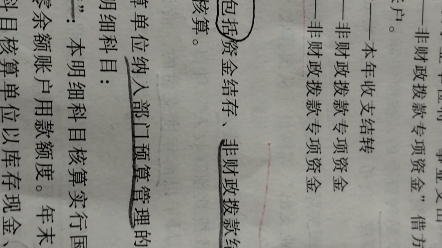 事业支
——非财政拨款专项资金”借方
账户。
——本年收支结转
——非财政拨款专项资金
——非财政拨款专项资金
包括资金结存、非财政拨款结
核算。
算单位纳入部门预算管理的
明细科目：
”：本明细科目核算实行国
零余额账户用款额度。年末
科目核算单位以库存现金、